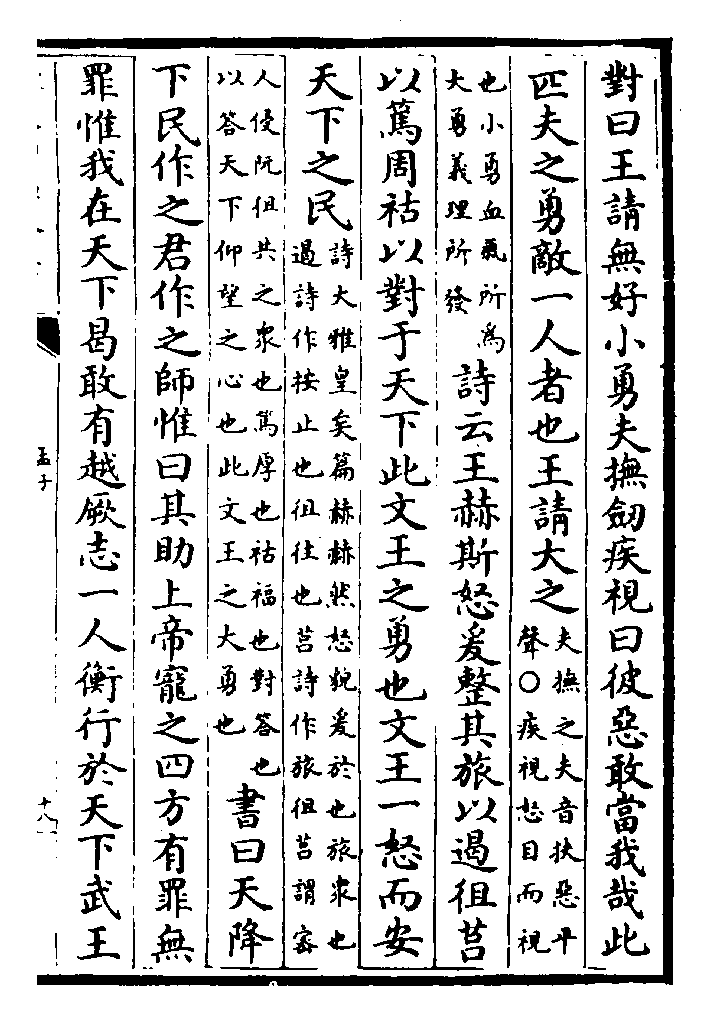 對曰王請無好小勇夫撫劒疾視曰彼惡敢當我哉此
匹夫之勇敵一人者也王請大之
夫撫之夫音扶惡平
聲○疾視怒目而視
也小勇血氣所為
大勇義理所發
詩云王赫斯怒爰整其旅以遏徂莒
以篤周祜以對于天下此文王之勇也文王一怒而安
天下之民
詩大雅皇矣篇赫赫然怒貌爰於也旅衆也
遏詩作按止也徂往也莒詩作旅徂莒謂宻
人侵阮徂共之衆也篤厚也祜福也對答也
以答天下仰望之心也此文王之大勇也
書曰天降
下民作之君作之師惟曰其助上帝寵之四方有罪無
罪惟我在天下曷敢有越厥志一人衡行於天下武王
孟子
十八